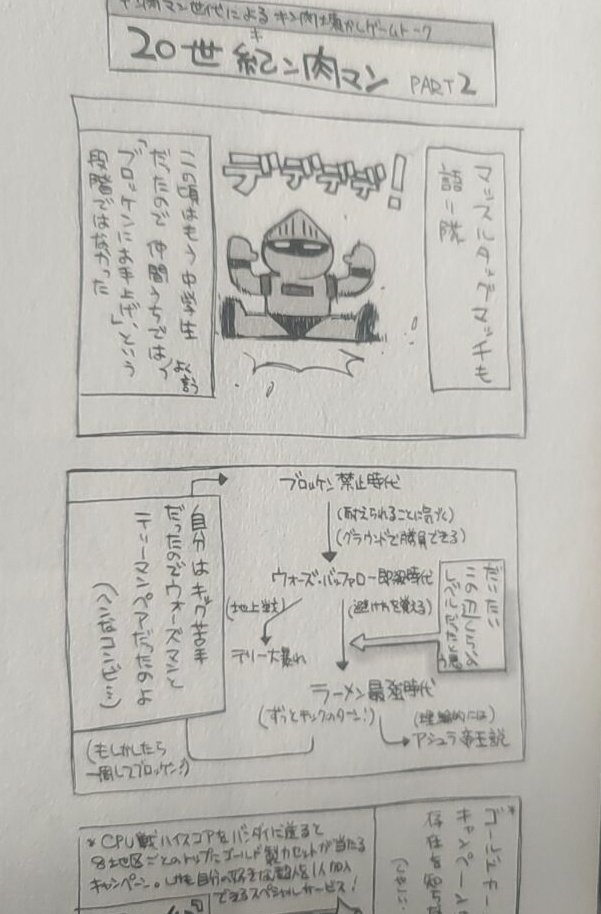 キン肉マン世代によるキン肉懐かしゲームトーク
20世紀ン肉マン PART2
キ
マッスルタッグマッチも
語り隊
デデデデ!
この頃はもう中学生
だったので仲間うちでは
よく言う
「ブロッケンにお手上げ」という
段階ではなかった
ブロッケン禁止時代
(耐えられることに気づく)
(グラウンドで勝負できる)
ウォーズ・バッファロー即殺時代
(地上戦)
(避け方を覚える)
テリー大暴れ
ラーメン最強時代
(ずっとキックのターン!)
(理論的には)
アシュラ帝王説
だいたい
この辺くらいの
レベルだったと思う
自分はキック苦手
だったのでウォーズマンと
テリーマンペアだったのよ
(へんなコンビ…)
(もしかしたら
一周してブロッケン?)
*ゴールドカー
キャンペーン
存在を知ら
*CPU戦ハイスコアをバンダイに送ると
8地区ごとのトップにゴールド製カセットが当たる
キャンペーン。しかも自分の好きな超人を1人加入
できるスペシャルサービス!